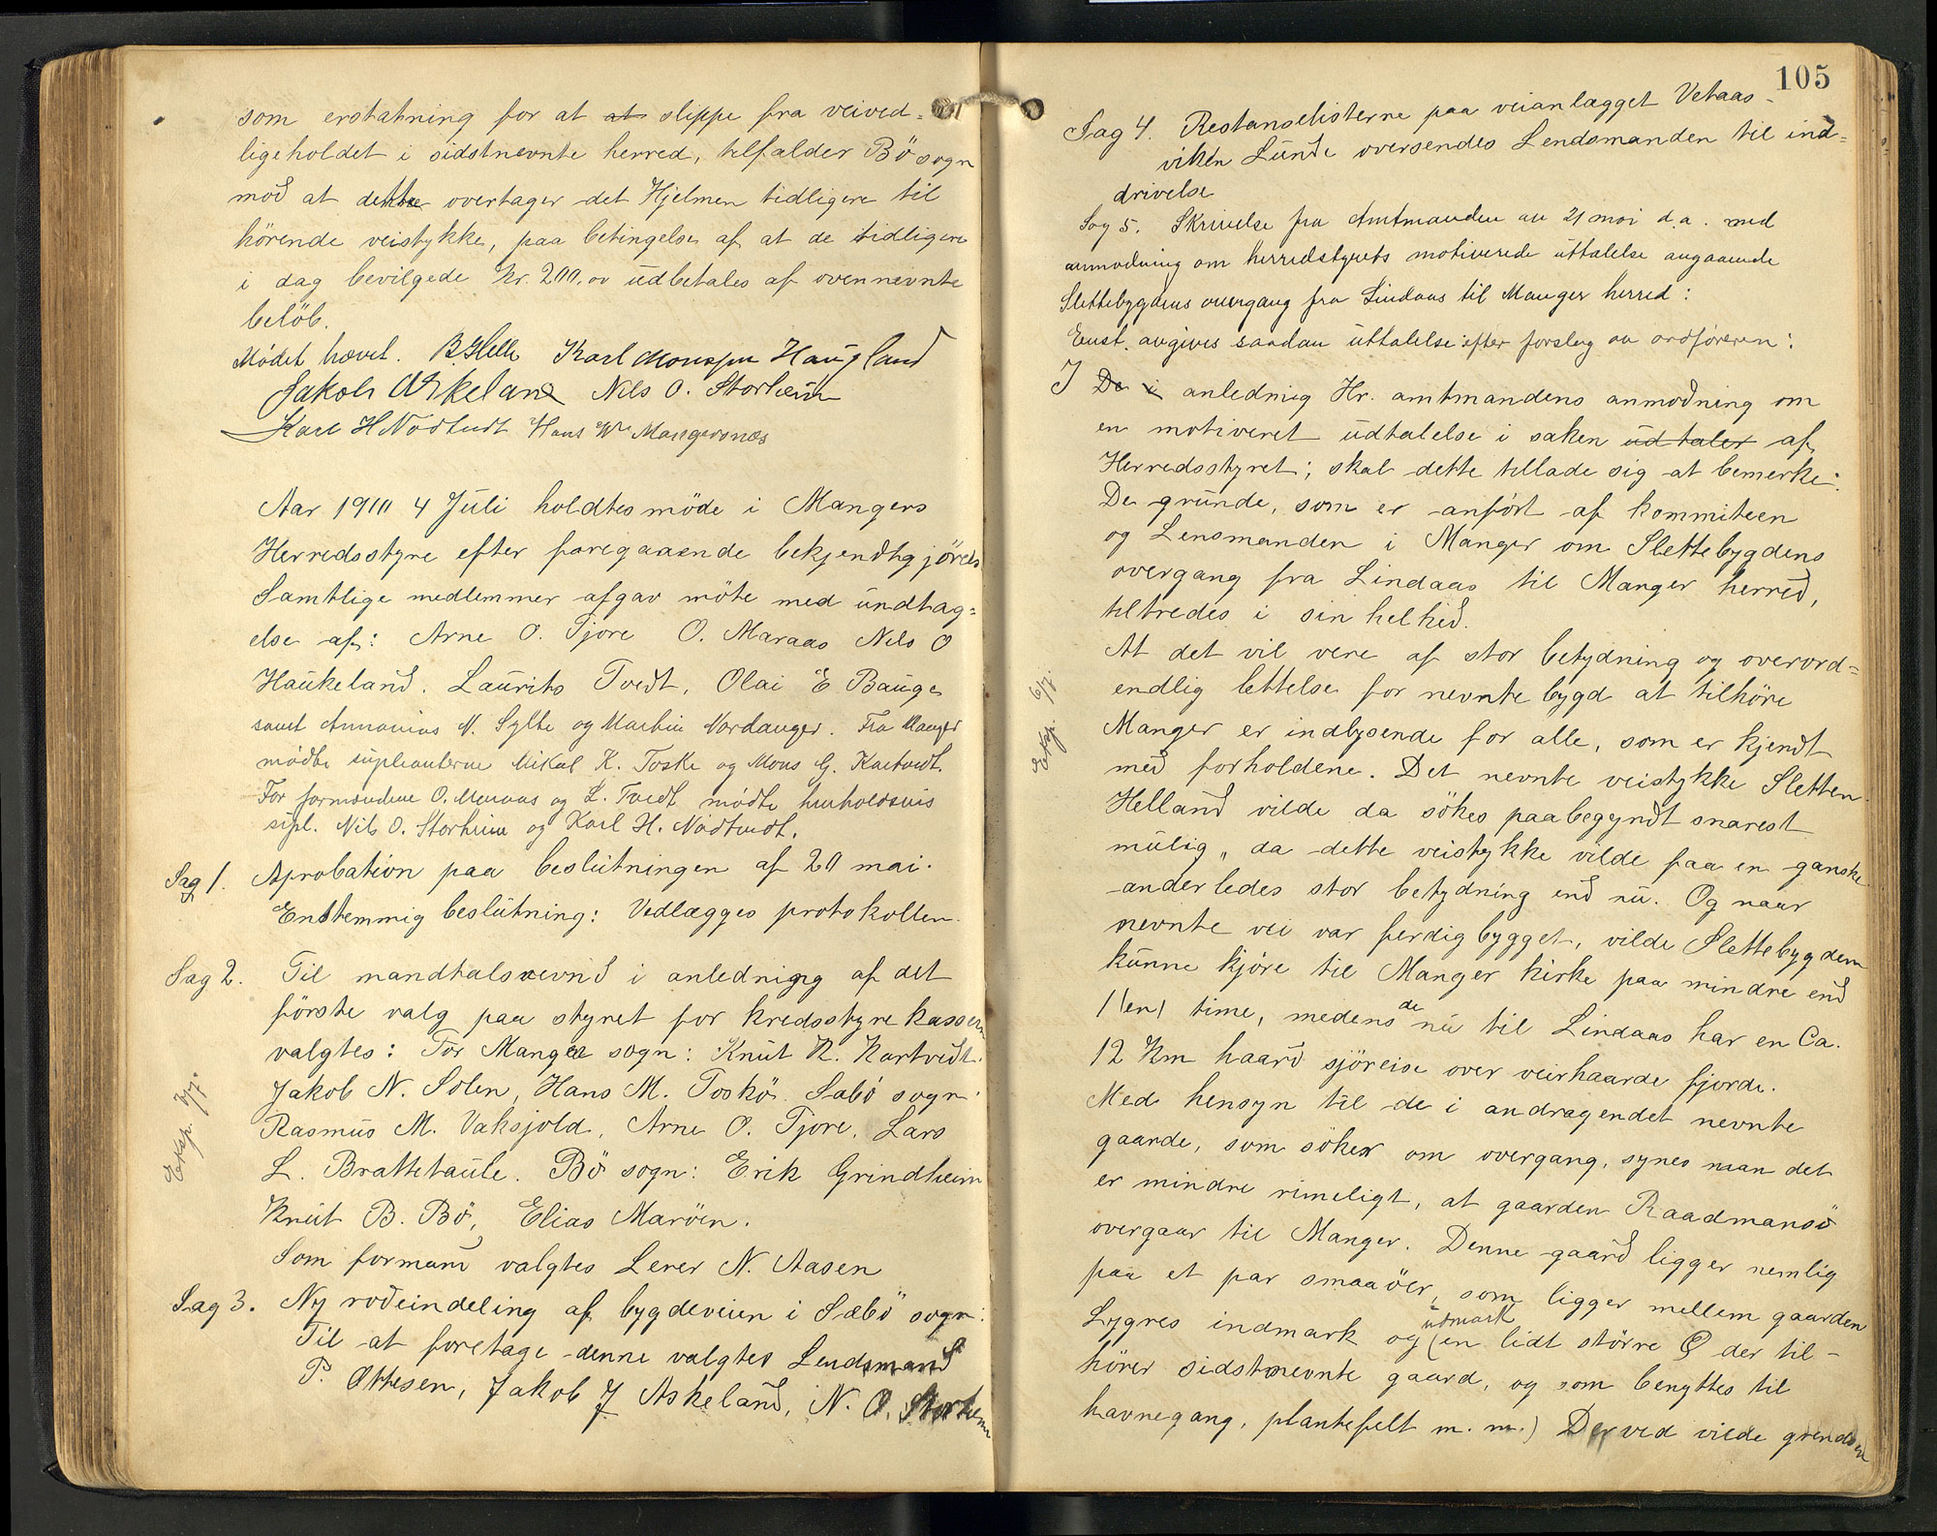 som erstatning for at at slippe fra veived=
ligeholdet i sidstnevnte herred, tilfalder Bö sogn
mod at dette overtager det Hjelmen tidligere til
hörende veistykke, paa betingelse af at de tidligere
i dag bevilgede kr. 200,00 udbetales af ovennevnte
belöb.
Mödet hævet. B Helle Karl Monssen Haugland
Jakob Askeland Nils O. Storheim
Karl H Nódtvedt Hans Mangersnes
Aar 1910 4 Juli holdtes möde i Mangers
Herredsstyre efter foregaaende bekjendtgjörels
Samtlige medlemmer afgav möte med undtag=
else af: Arne O. Fjore O. Maraas Nils O
Haukeland. Laurits Tvedt, Olai E Bauge
samt Annanias N. Sylte og Martin Nordanger. Fra Manger
mödte supleanterne Mikal K. Toske og Mons G. Kartveit.
For formændene O. Maraas og L. Tvedt mödte henholdsvis
supl. Nils O. Storheim og Karl H. Nódtvedt.
Sag 1. Aprobation paa beslutningen af 20 mai.
Enstemmig beslutning: Vedlægges protokollen.
Sag 2. Til mandtalsnevnd i anledning af det
förste valg paa styret for kredsstyrekassen
valgtes: For Manger sogn: Knut K. Kartveidt.
Jakob N. Solen, Hans M. Toskö. Sæbö sogn:
Rasmus M. Vaksjold, Arne O. Fjore. Lars
L. Brattetaule. Bö sogn: Erik Grindheim
Knut B. Bö, Elias Maröen.
Eksp. 7/7.
Som formand valgtes Lerer N. Aasen
Sag 3. Ny rodeindeling af bygdeveien i Sæbö sogn:
Til at foretage denne valgtes Lendsmand
P. Ottesen, Jakob J Askeland, N. O. Storheim
105
Sag 4. Restanselisterne paa veianlægget Vetaas-
viken Lunde oversendes Lendsmanden til ind=
drivelse
Sag 5. Skrivelse fra Amtmanden av 21 mai d.a. med
anmodning om herredstyrets motiverede uttalelse angaaende
Slettebygdens overgang fra Lindaas til Manger herred:
Enst. avgives saadan uttalelse efter forslag av ordföreren:
I De i anledning Hr. amtmandens anmodning om
en motiveret udtalelse i saken udtaler af
Herredsstyret; skal dette tillade sig at bemerke:
De grunde, som er anfört af kommiteen
og Lensmanden i Manger om Slettebygdens
overgang fra Lindaas til Manger herred,
tiltredes i sin helhed.
At det vil vere af stor betydning og overord=
endlig lettelse for nevnte bygd at tilhöre
Manger er indlysende for alle, som er kjendt
Eksp. 6/7
med forholdene. Det nevnte veistykke Sletten-
Helland vilde da sökes paabegyndt snarest
mulig, da dette veistykke vilde faa en ganske
anderledes stor betydning end nu. Og naar
nevnte vei var ferdig bygget, vilde Slettebygden
kunne kjöre til Manger kirke paa mindre end
1 (en) time, medens de nu til Lindaas har en Ca.
12 Km haard sjöreise over veirhaarde fjorde.
Med hensyn til de i andragendet nevnte
gaarde, som söker om overgang, synes man det
er mindre rimeligt, at gaarden Raadmansö
overgaar til Manger. Denne gaard ligger nemlig
paa et par smaaöer, som ligger mellem gaarden
Lygres indmark og utmark (en lidt större Ö der til-
hörer sidstnevnte gaard, og som benyttes til
havnegang, plantefelt m. m.) Derved vilde grendsen